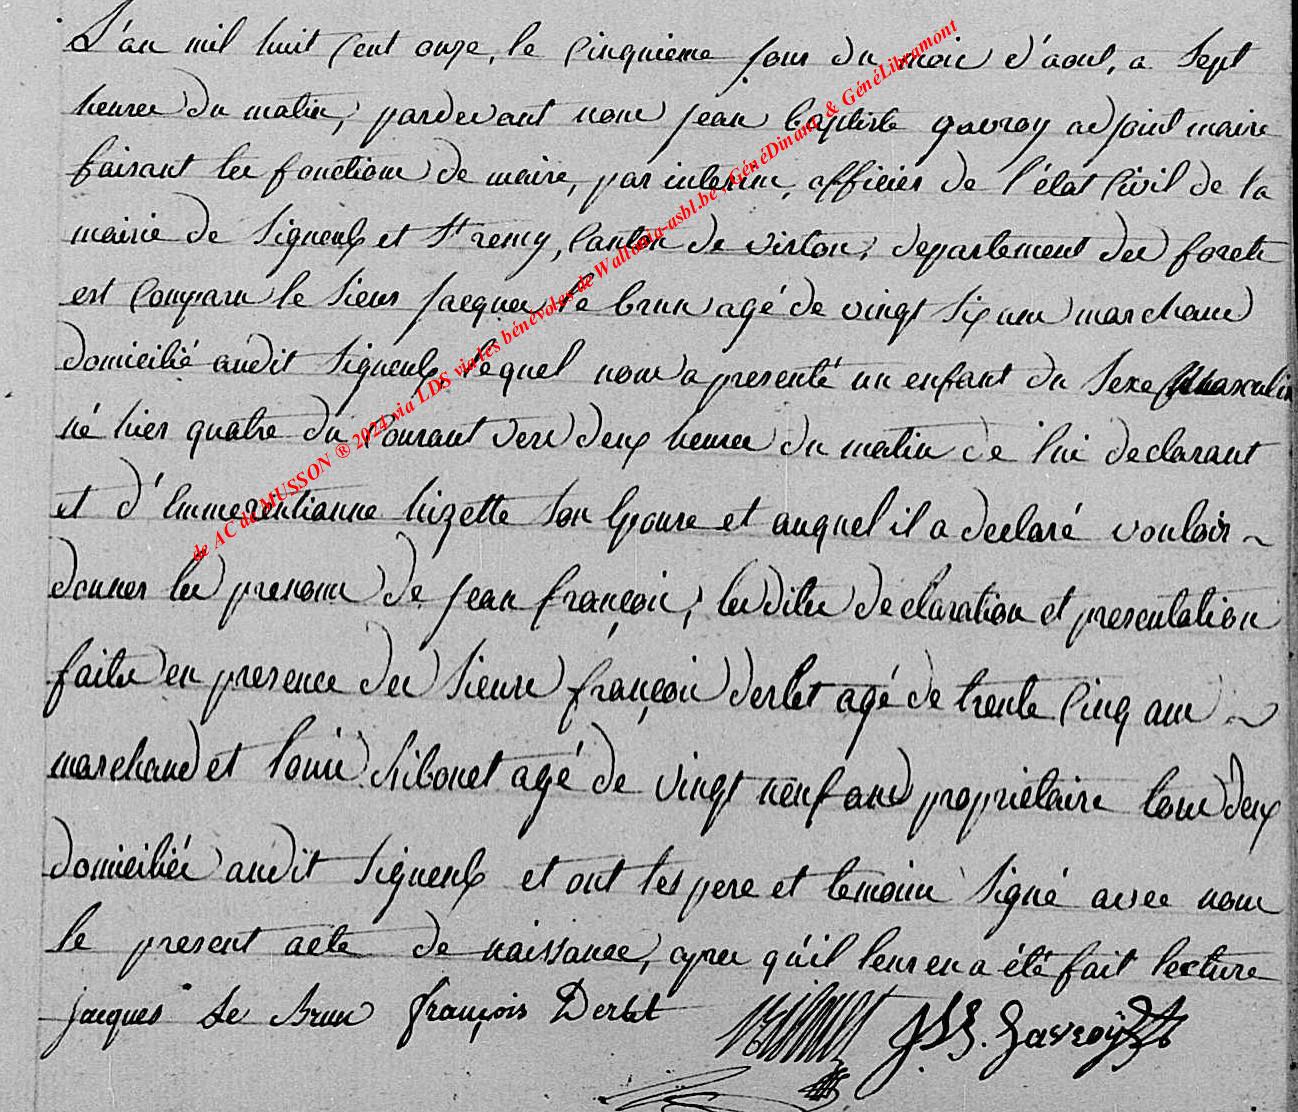 L'an mil huit Cent onze, le Cinquieme jour du mois d'aout, a Sept
heures du matin, pardevant nous jean baptiste gavroy adjoint maire
faisant les fonctions de maire, par interim, officier de l'état Civil de la
mairie de Signeulx et St remy, Canton de virton, departement des forets
est Comparu le Sieur jacques le brun agé de vingt Six ans marchand
domicilié audit Signeulx, lequel nous a presenté un enfant du Sexe masculin
né hier quatre du Courant vers deux heures du matin de lui declarant
et d'Emmerentianne lizette Son Epouse et auquel il a declaré vouloir ~
donner les prenoms de jean françois, lesdites declaration et presentation
faites en presence des Sieurs françois derlet agé de trente Cinq ans ~
marchand et louis agé de vingt neuf ans proprietaire tous deux
domiciliés audit Signeulx et ont les pere et temoins Signé avec nous
le present acte de naissance, apres qu'il leur en a été fait lecture
jacques Le Brun françois Derlet JBt. Gavroÿ
de AC de MUSSON ® 2024 via LDS via les bénévoles de Wallonia-asbl.be, GénéDinant & GénéLibramont